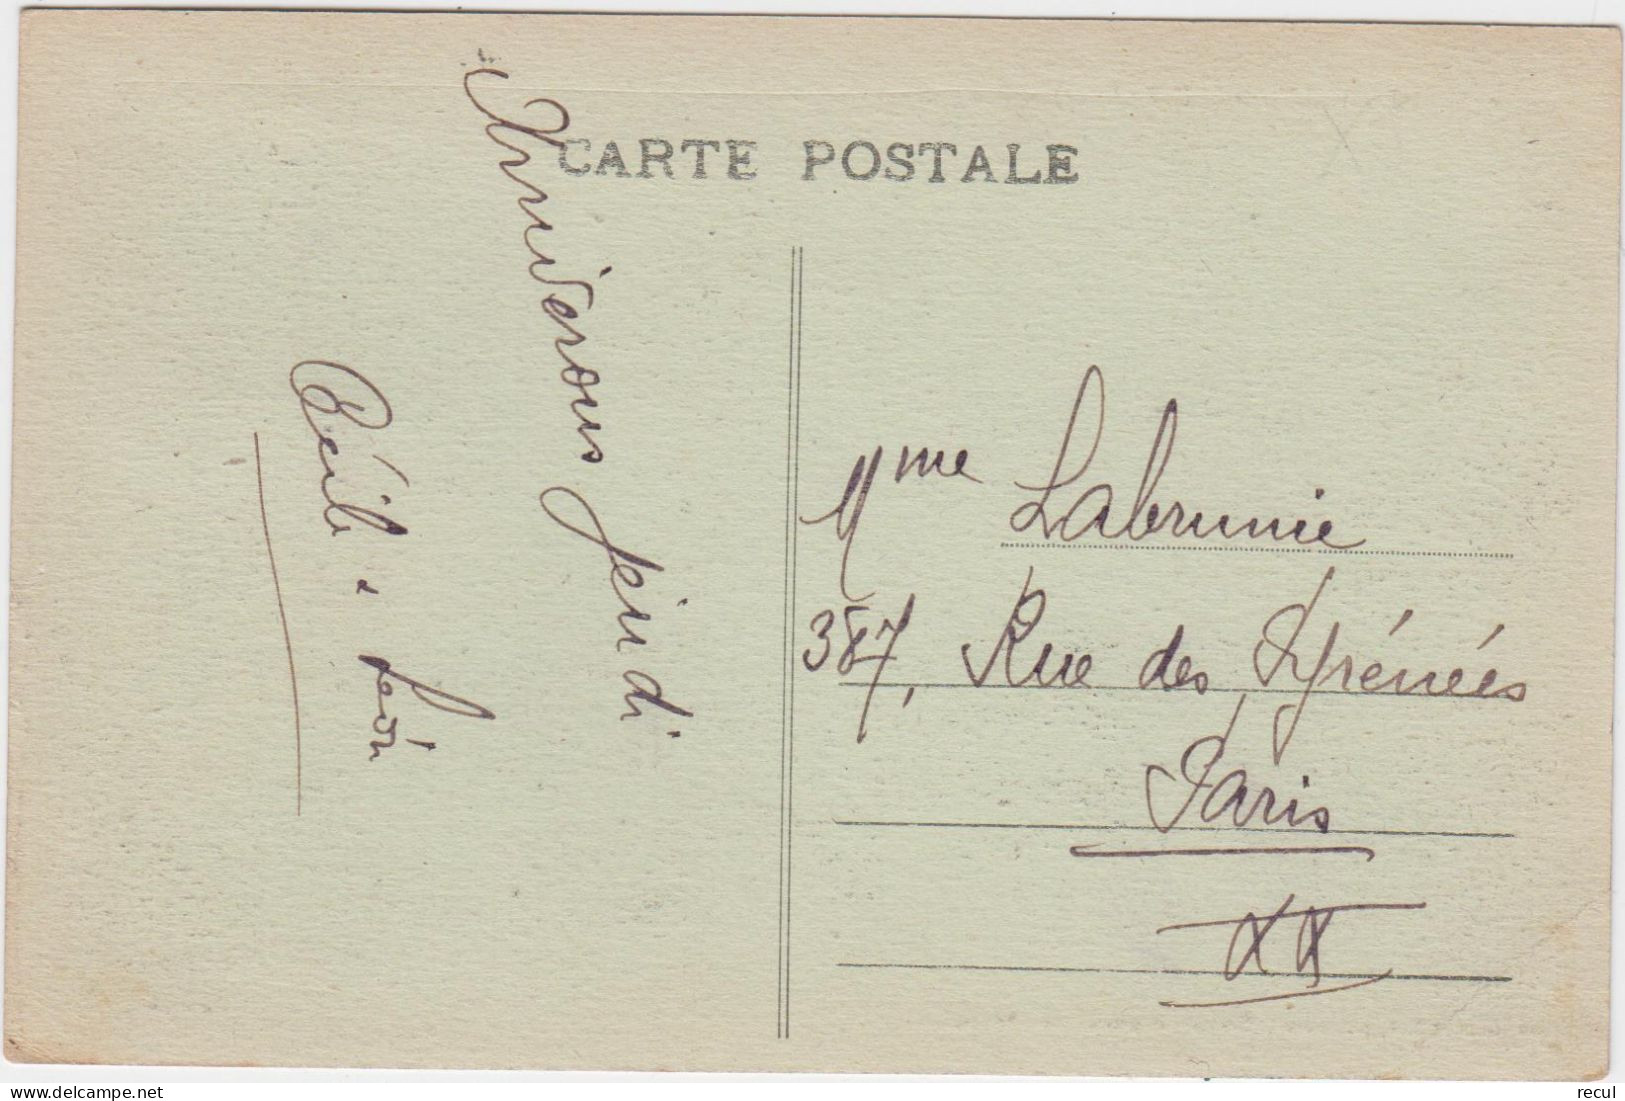 CARTE POSTALE
Arriverons jeudi
Cécile - Léon
Mme Labrunie
387, Rue des Pyrénées
Paris
XX
www.delcampe.net
recul